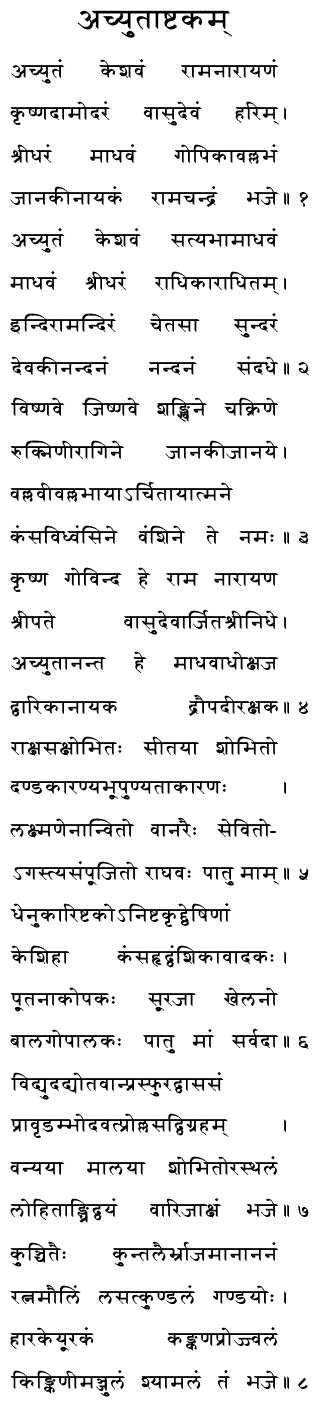 अच्युताष्टकम्
अच्युतं केशवं रामनारायणं
कृष्णदामोदरं वासुदेवं हरिम्।
श्रीधरं माधवं गोपिकावल्लभं
जानकीनायकं रामचन्द्रं भजे॥ १
अच्युतं केशवं सत्यभामाधवं
माधवं श्रीधरं राधिकाराधितम्।
इन्दिरामन्दिरं चेतसा सुन्दरं
देवकीनन्दनं नन्दनं संदधे॥ २
विष्णवे जिष्णवे शङ्खिने चक्रिणे
रुक्मिणीरागिने जानकीजानये।
वल्लवीवल्लभायाऽर्चितायात्मने
कंसविध्वंसिने वंशिने ते नमः॥ ३
कृष्ण गोविन्द हे राम नारायण
श्रीपते वासुदेवार्जितश्रीनिधे।
अच्युतानन्त हे माधवाधोक्षज
द्वारिकानायक द्रौपदीरक्षक॥ ४
राक्षसक्षोभितः सीतया शोभितो
दण्डकारण्यभूपुण्यताकारणः ।
लक्ष्मणेनान्वितो वानरैः सेवितो-
ऽगस्त्यसंपूजितो राघवः पातु माम्॥ ५
धेनुकारिष्टकोऽनिष्टकृद्द्वेषिणां
केशिहा कंसहृद्वंशिकावादकः।
पूतनाकोपकः सूरजा खेलनो
बालगोपालकः पातु मां सर्वदा॥ ६
विद्युदद्योतवान्प्रस्फुरद्वाससं
प्रावृडम्भोदवत्प्रोल्लसद्विग्रहम् ।
वन्यया मालया शोभितोरस्थलं
लोहिताङ्घ्रिद्वयं वारिजाक्षं भजे॥ ७
कुञ्चितैः कुन्तलैर्भ्राजमानाननं
रत्नमौलिं लसत्कुण्डलं गण्डयोः।
हारकेयूरकं कङ्कणप्रोज्ज्वलं
किङ्किणीमञ्जुलं श्यामलं तं भजे॥ ८